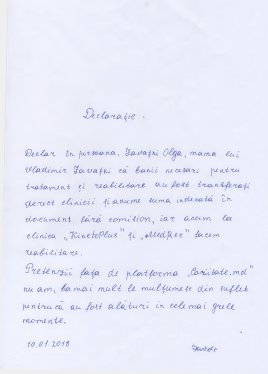 Declarație.
Declar în persoana, Zavatki Olga, mama lui
Vladimir Zavatki că banii necesari pentru
tratament și reabilitare au fost transferați
derect clinicii și anume suma indecată în
document fără comision, iar acum la
clinica „KinetoPlus" și „MedRec" facem
reabilitare.
Pretenzii fața de platforma „Caritate.md"
nu am, ba mai mult le mulțumesc din suflet
pentrucă au fost alături în cele mai grele
momente.
10.01.2018